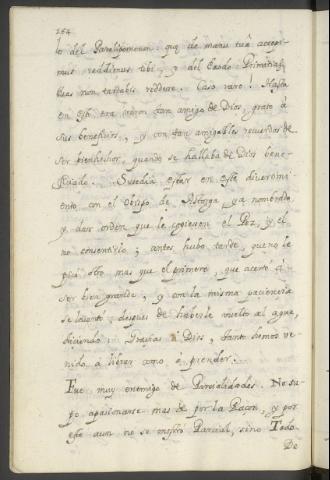 264
lo del Paralipomenon: quę de manu tuâ accepi-
mus reddimus tibi, y del Exodo Primitias
tuas non tardabis reddere. Caso raro! Hasta
en esto era señor tan amigo de Dios, grato à
sus beneficios, y con tan amigables recuerdos de
ser bienhechor, quando se hallaba de Dios bene-
ficiado. Sucedia estar en este diverti-
ento con el Obispo de Astorga, ya nombrado
y dar orden que le cogiesen el Pez, y el
no consentirlo; antes hubo tarde, que no le
picò otro mas que el primero, que acertò à
ser bien grande, y con la misma paciencia
se levanto, despues de haberle vuelto al agua,
diciendo: Gracias à Dios, tanto hemos ve-
nido à librar como à prender.
Fue muy enemigo de Parcialidades. No su-
po apasionarse mas de por la Razon, y por
esto aun no se mostrò Parcial, sino Todo.
De